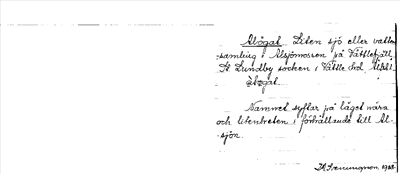 Alögat Liten sjö eller vatten-
samling i Alsjömossen på Vättlefjäll,
St Lundby socken i Vättle hd,

Namnet syftar på läget nära
och litenheten i förhållande till Al-
sjön.
1928.